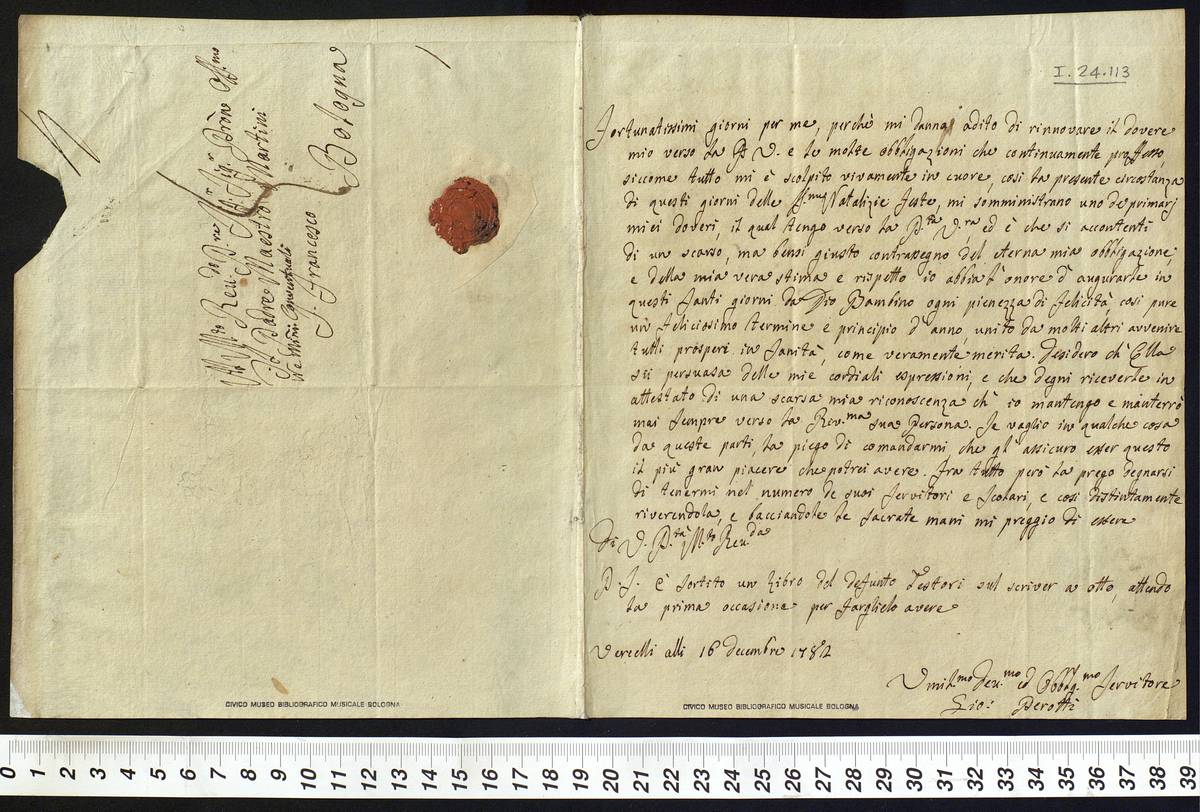 Al Molto Reu.do P.re Sig.r Sig.r P.rone Oss.mo
Il Padre Maestro Martini
de Min: Conventuali
S. Francesco
Bologna
I. 24.113
Fortunatissimi giorni per me, perchè mi danna adito di rinnovare il dovere
mio verso la P. V. e le molte obbligazioni che continuamente proffesso,
siccome tutto mi è scolpito vivamente in cuore, così la presente circostanza
di questi giorni delle SS.me Natalizie feste, mi somministrano uno de primarj
miei doveri, il qual tengo verso la P.tà V.ra ed è che si accontenti
di un scarso, ma bensi giusto contrapegno del eterna mia obbligazione,
e della mia vera stima e rispetto io abbia l'onore d'augurarle in
questi Santi giorni da Dio Bambino ogni pienezza di felicità, così pure
un feliciosimo termine e principio d'anno, unito da molti altri avvenire
tutti prosperi in Sanità, come veramente merita. Desidero ch'Ella
sii persuasa delle mie cordiali espressioni, e che degni riceverle in
attestato di una scarsa mia riconoscenza ch'io mantengo e manterrò
mai sempre verso la Rev.ma sua Persona. Se vaglio in qualche cosa
da queste parti, la piego di comandarmi, che gl'assicuro esser questo
il più gran piacere che potrei avere. Fra tutto però la prego degnarsi
di tenermi nel numero de suoi Servitori e Scolari, e così distintamente
riverendola, e bacciandole le sacrate mani mi preggio di essere
Di V. P.tà M.to Reu.da
P.S. È sortito un Libro del defunto Testori sul scriver a otto, attendo
la prima occasione per farglielo avere
Vercelli alli 16 Decembre 1782
Umil.mo Deu.mo ed Obblig.mo Servitore
Gio: Perotti
CIVICO MUSEO BIBLIOGRAFICO MUSICALE BOLOGNA
CIVICO MUSEO BIBLIOGRAFICO MUSICALE BOLOGNA
0 1 2 3 4 5 6 7 8 9 10 11 12 13 14 15 16 17 18 19 20 21 22 23 24 25 26 27 28 29 30 31 32 33 34 35 36 37 38 39